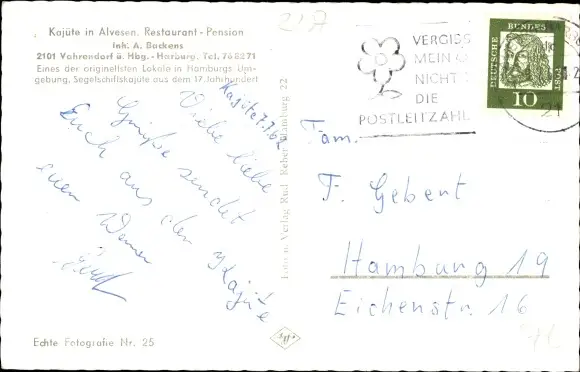 Kajüte in Alvesen. Restaurant - Pension
Ink. A. Backens
2101 Vahrendorf ü. Hbg.-Harburg. Tel. 768271
Eines der originellsten Lokale in Hamburgs Um-
gebung, Segelschiffskajüte aus dem 17. Jahrhundert
21A
VERGISS
MEIN
NICHT
DIE
POSTLEITZAHL
DEUTSCHE BUNDESPOST
10
21
Kajüte 7.7.62
Viele liebe
Grüße sendet
Euch aus der Kajüte
euer Werner
Fam.
F. Gebert
Hamburg 19
Eichenstr. 16
Foto u. Verlag Rud. Reher, Hamburg 22
Agfa
Echte Fotografie Nr. 25